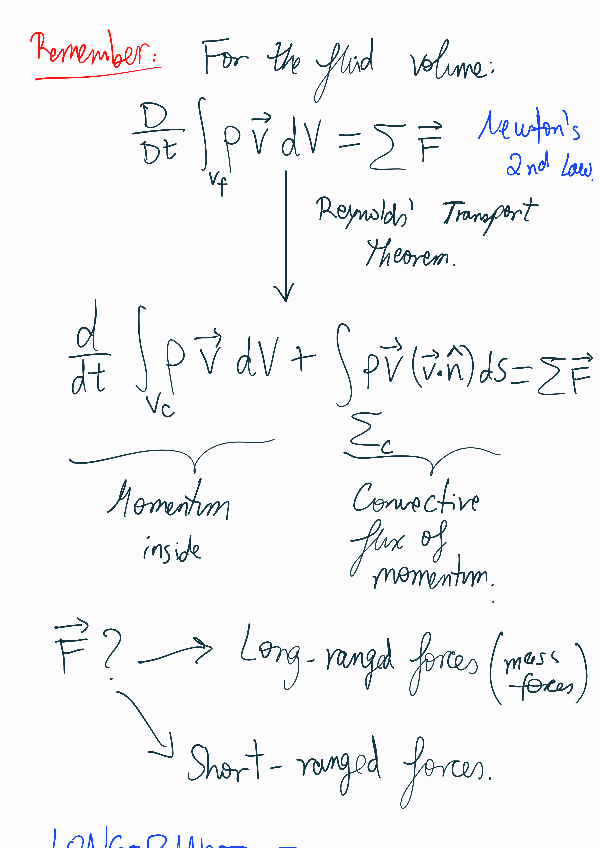 Remember: For the fluid volume:
D/Dt ∫_{V_f} ρ v⃗ dV = ∑ F⃗ Newton's
2nd Law.
Reynolds' Transport
Theorem.
d/dt ∫_{V_c} ρ v⃗ dV + ∫_{Σ_c} ρv⃗ (v⃗·n̂) dS = ∑F⃗
Momentum Convective
inside flux of
momentum.
F⃗ ? → Long-ranged forces (mass
forces)
Short-ranged forces.